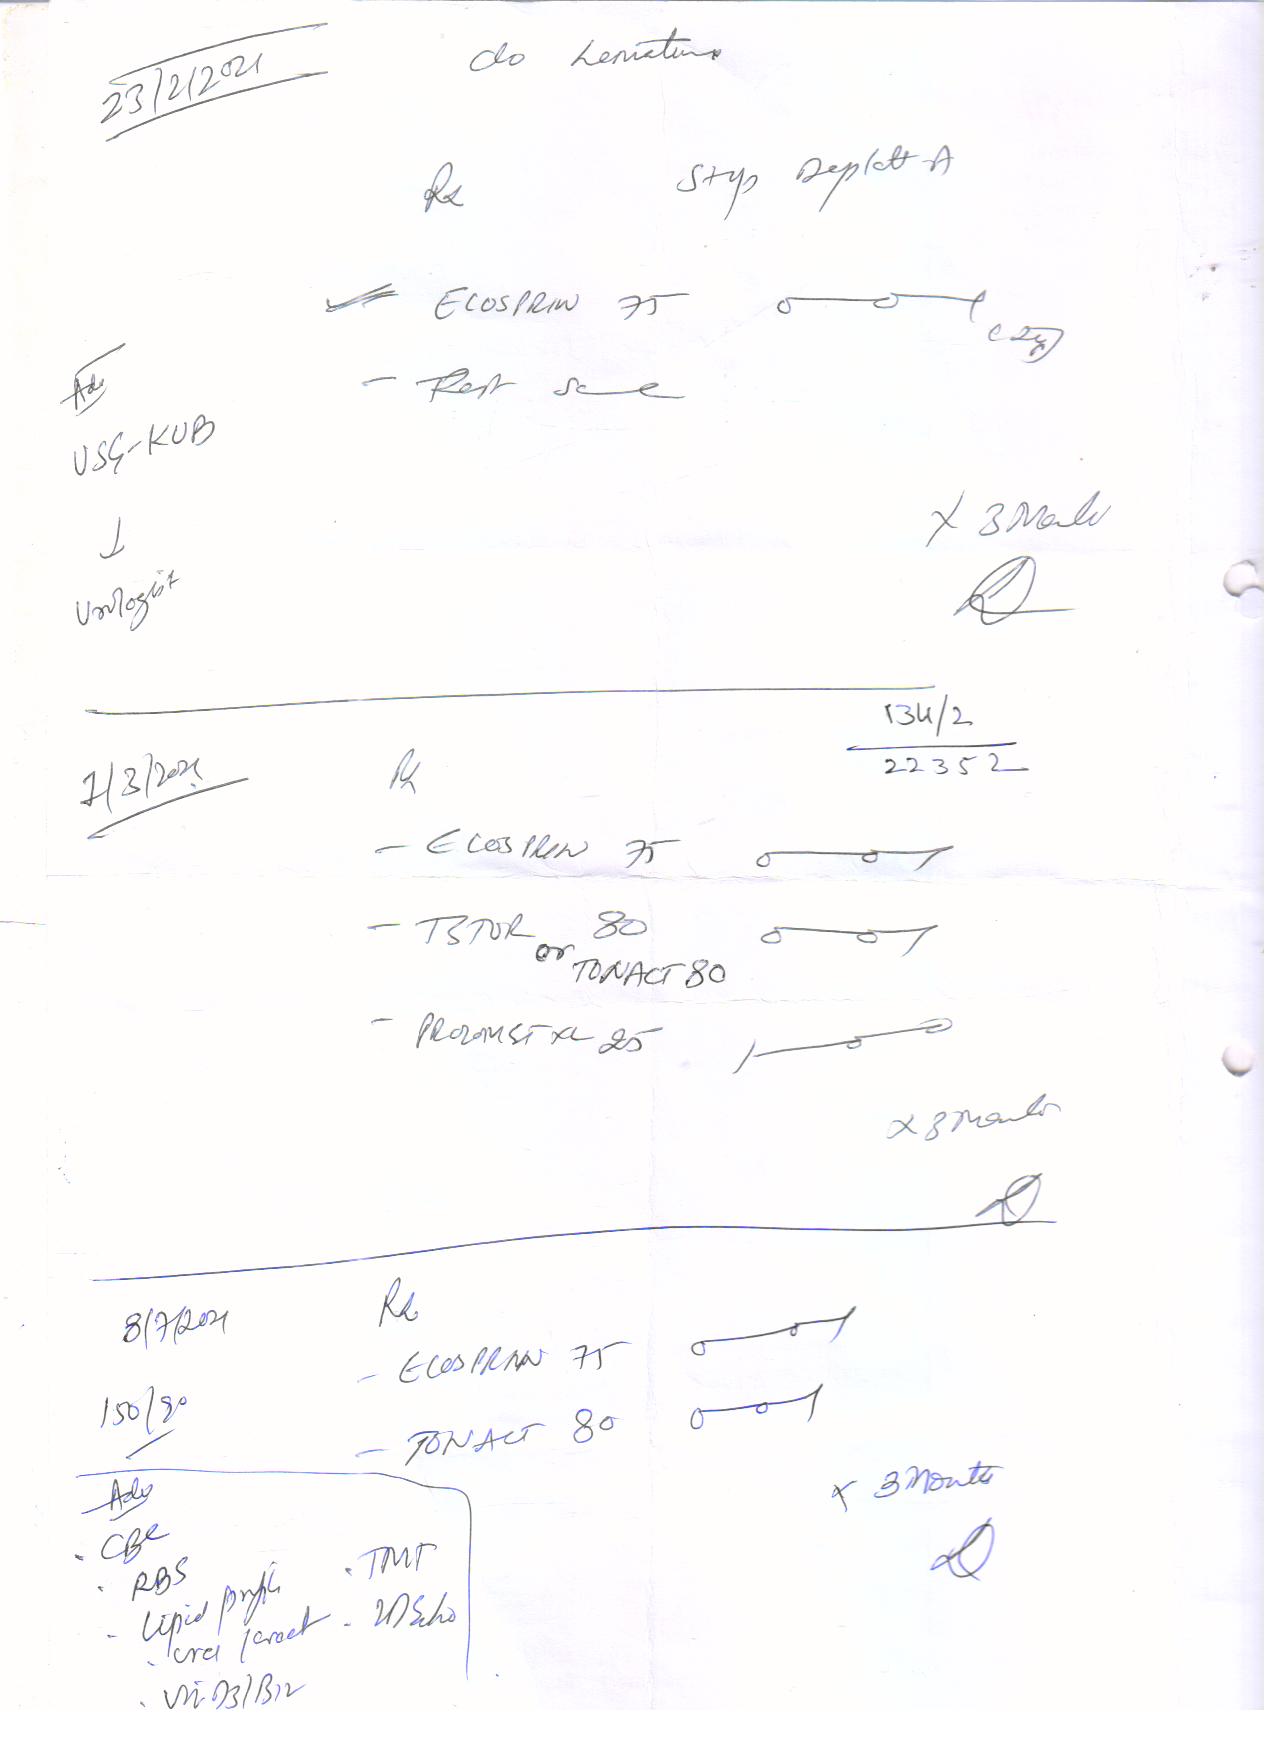 23/2/2021
c/o hematuria
Rx
Stop Deplatt-A
ECOSPRIN 75 0—0—1
- Rest same
Adv
USG-KUB
↓
Urologist
x 3 Months
134/2
22352
7/3/2021
Rx
- ECOSPRIN 75 0—0—1
- TZTOR 80 0—0—1
or TONACT 80
- PROLOMET XL 25 1—0—0
x 3 Months
8/7/2021
Rx
- ECOSPRIN 75 0—0—1
150/90
- TONACT 80 0—0—1
x 3 Months
Adv
· CBC
· RBS
· TMT
- Lipid profile
· 2D Echo
· urea /creat
· Vit-D3/B12